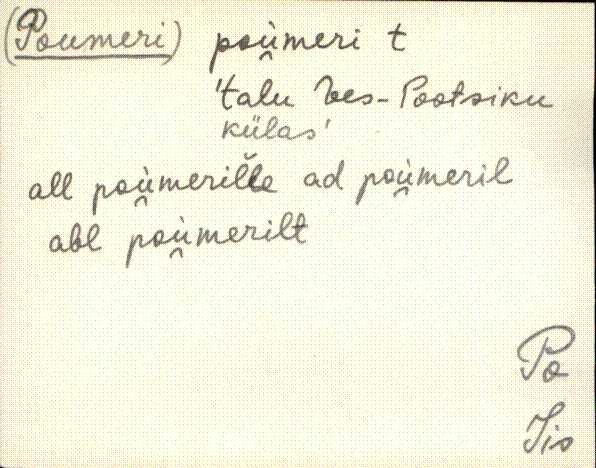 (Poumeri) poù̯meri t
'talu Ves-Pootsiku
külas'
all poù̯meril̆le ad poù̯meril
abl poù̯merilt
Po
Jis